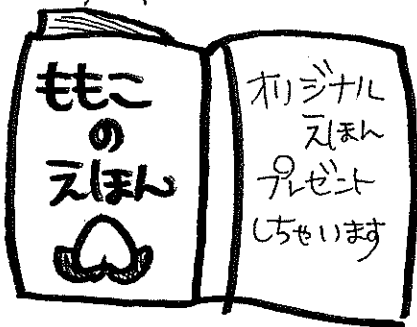 ももこ
の
えほん
オリジナル
えほん
プレゼント
しちゃいます